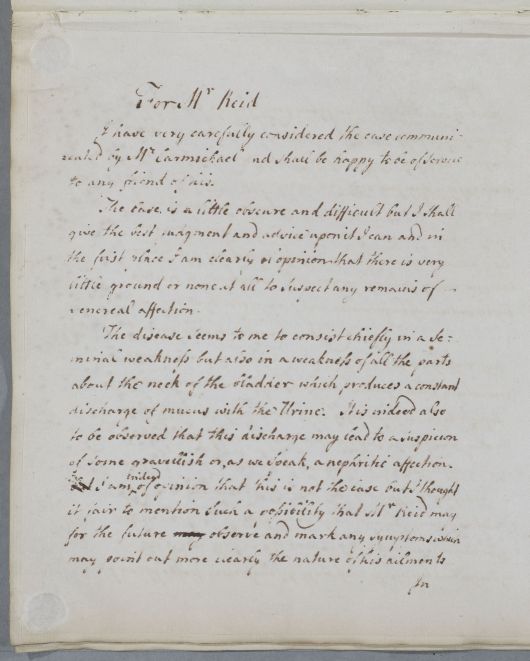 For Mr Reid
I have very carefully considered the case communi-
cated by Mr Carmichael nd shall be happy to be of Service
to any friend of his.
The case is a little obscure and difficult but I shall
give the best Judgment and advice upon it I can and in
the first place I am clearly of opinion that there is very
little ground or none at all to Suspect any remains of
venereal affection.
The disease Seems to me to consist chiefly in a Se-
minal weakness but also in a weakness of all the parts
about the neck of the bladder which produces a constant
discharge of mucus with the Urine. It is indeed also
to be observed that this discharge may lead to a Suspicion
of Some gravellish or, as we Speak, a nephritic affection.
I am indeed of opinion that this is not the case but I thought
it fair to mention Such a possibility that Mr Reid may
for the future may observe and mark any Symptoms which
may point out more clearly the nature of his ailments
In